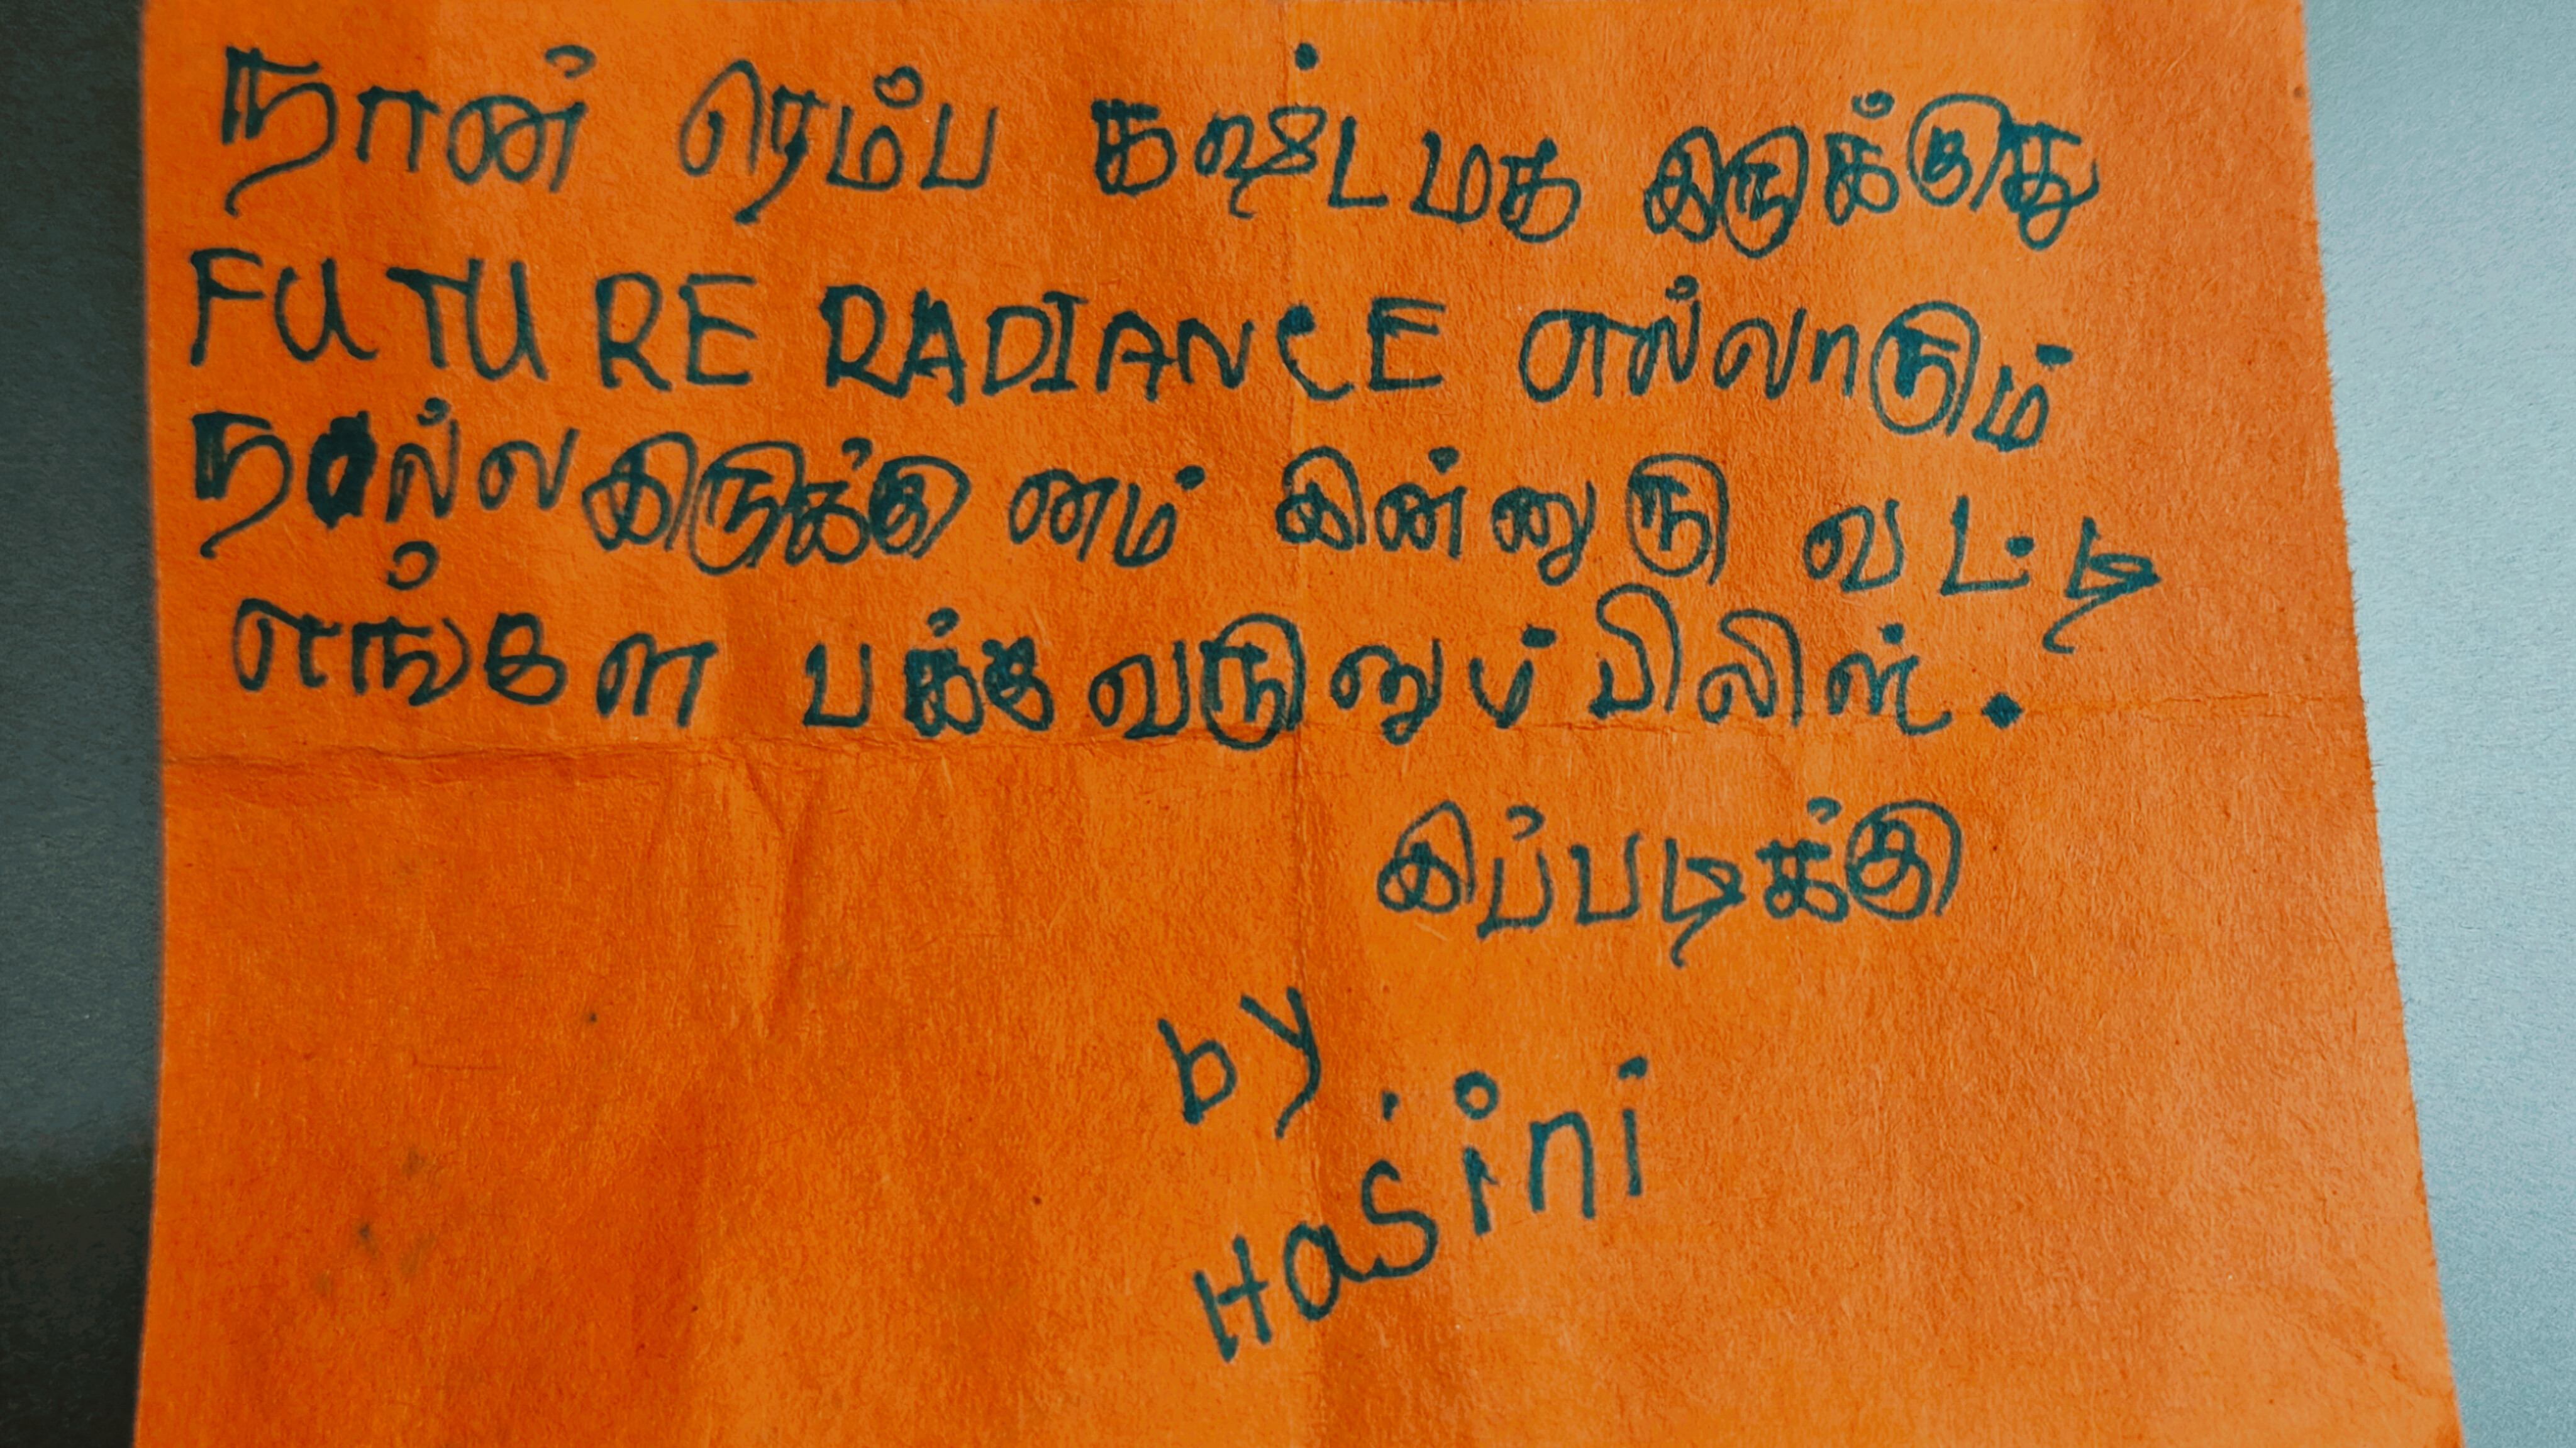 நான் ரெம்ப கஷ்டமக இருக்குது
FUTURE RADIANCE எல்லாரும்
நல்லஇருக்கு னம் இன்னுரு வட்டி
எங்கள பக்கவருனுப் பிலிஸ்.
இப்படிக்கு
by
Hasini